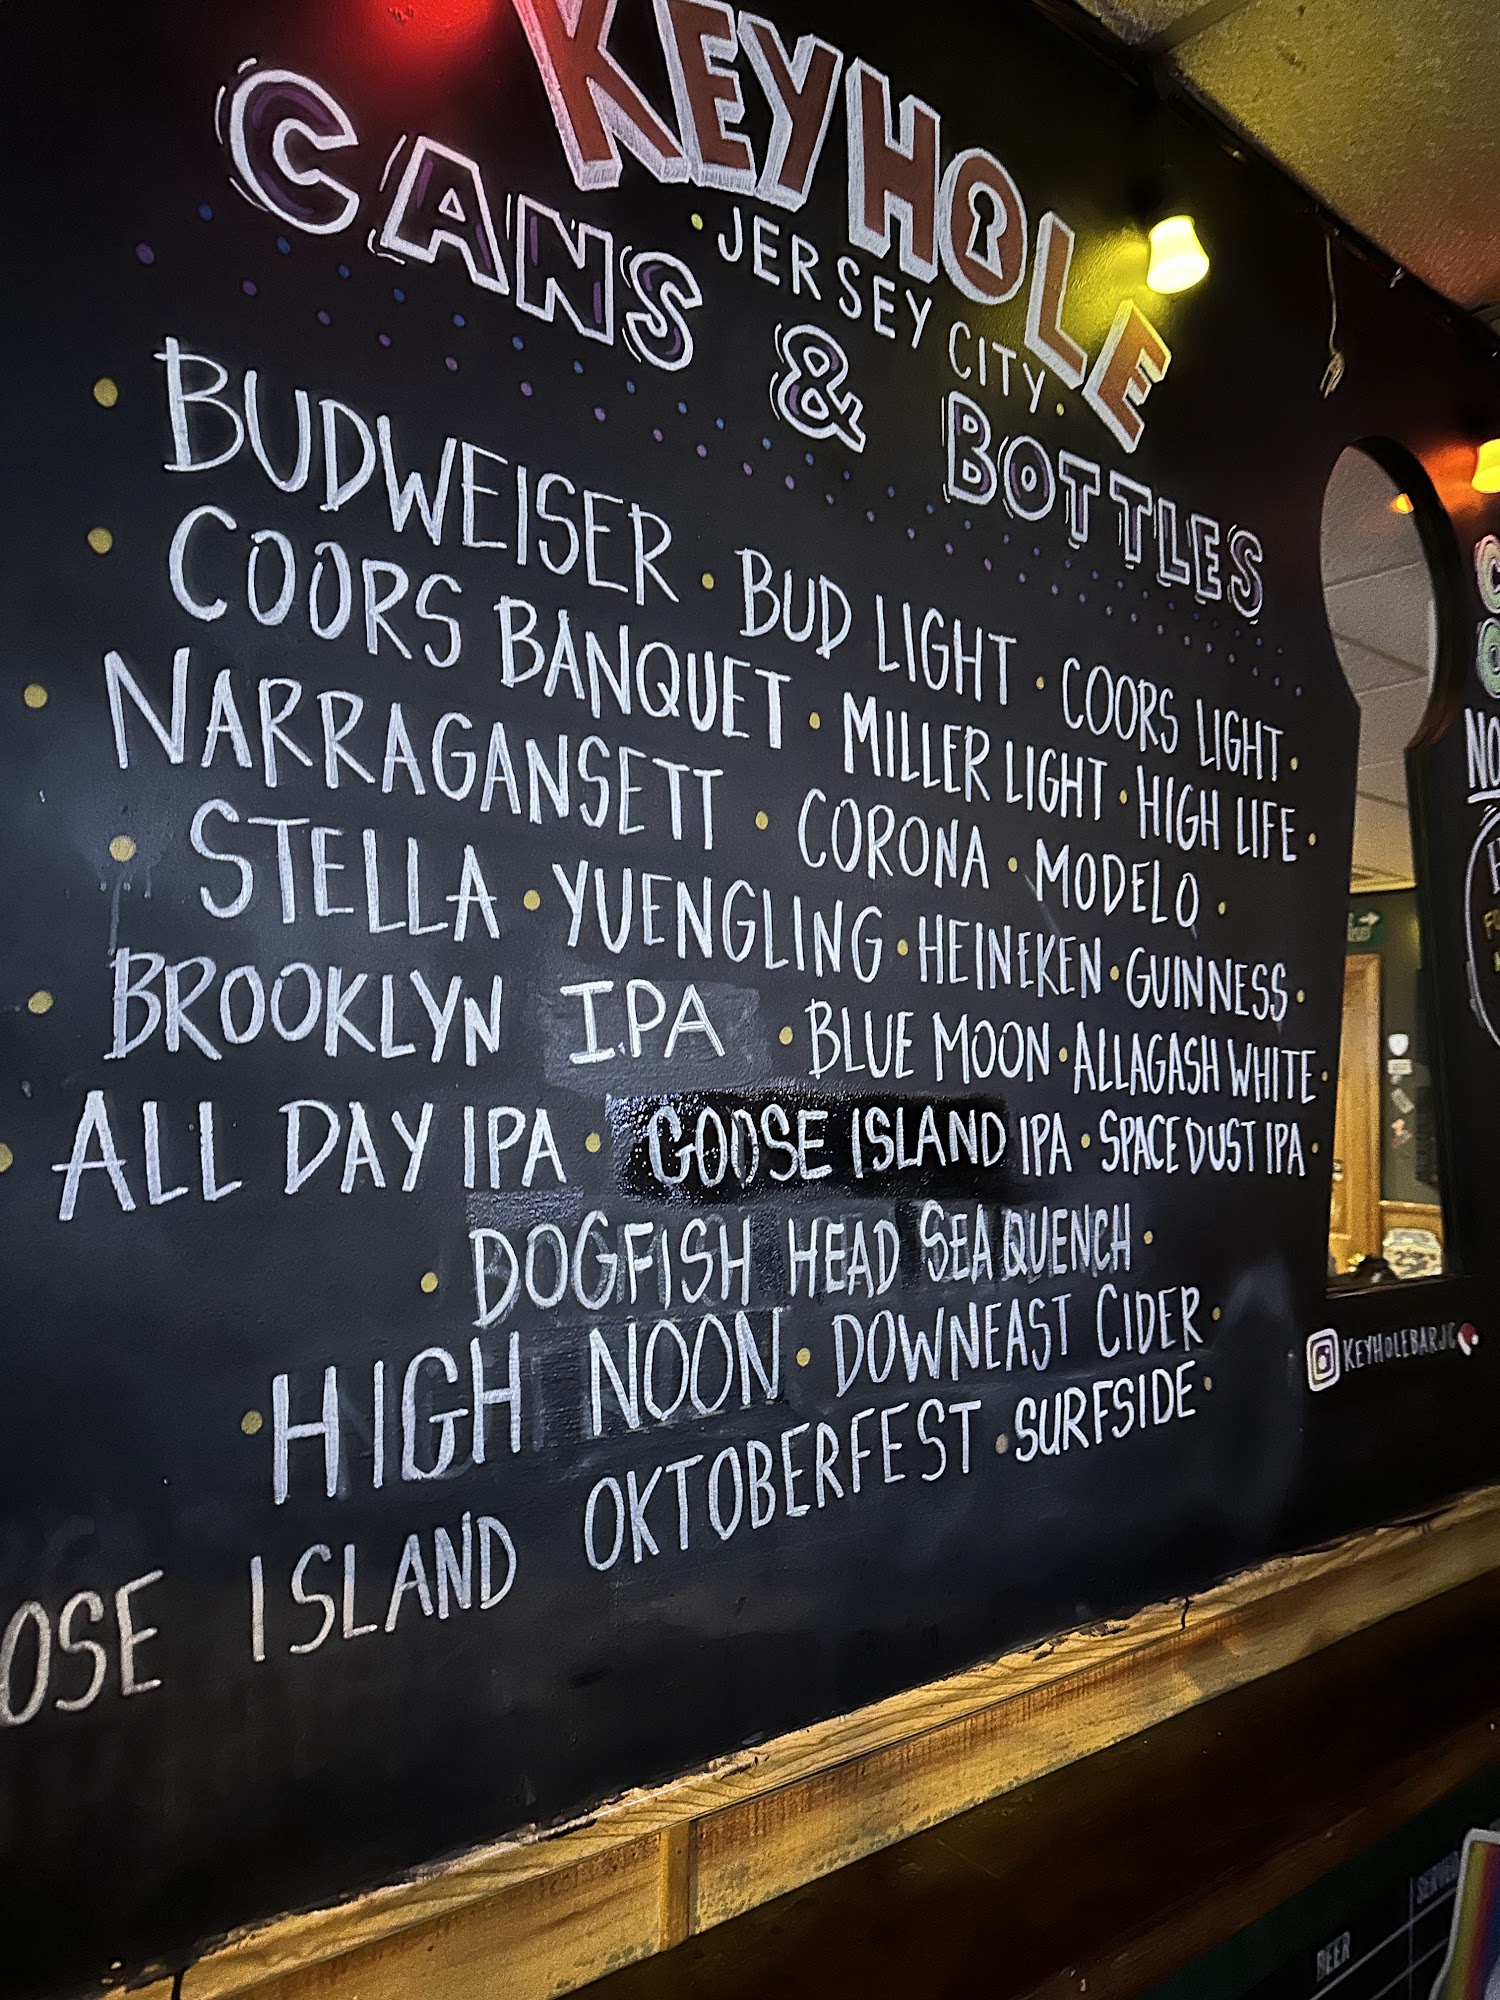 KEYHOLE
• JERSEY CITY •
CANS & BOTTLES
• BUDWEISER • BUD LIGHT • COORS LIGHT •
• COORS BANQUET • MILLER LIGHT • HIGH LIFE •
• NARRAGANSETT • CORONA • MODELO •
• STELLA • YUENGLING • HEINEKEN • GUINNESS •
• BROOKLYN IPA • BLUE MOON • ALLAGASH WHITE •
• ALL DAY IPA • GOOSE ISLAND IPA • SPACE DUST IPA •
• DOGFISH HEAD SEAQUENCH •
• HIGH NOON • DOWNEAST CIDER •
OSE ISLAND OKTOBERFEST • SURFSIDE •
KEYHOLEBARJC
NO
BEER